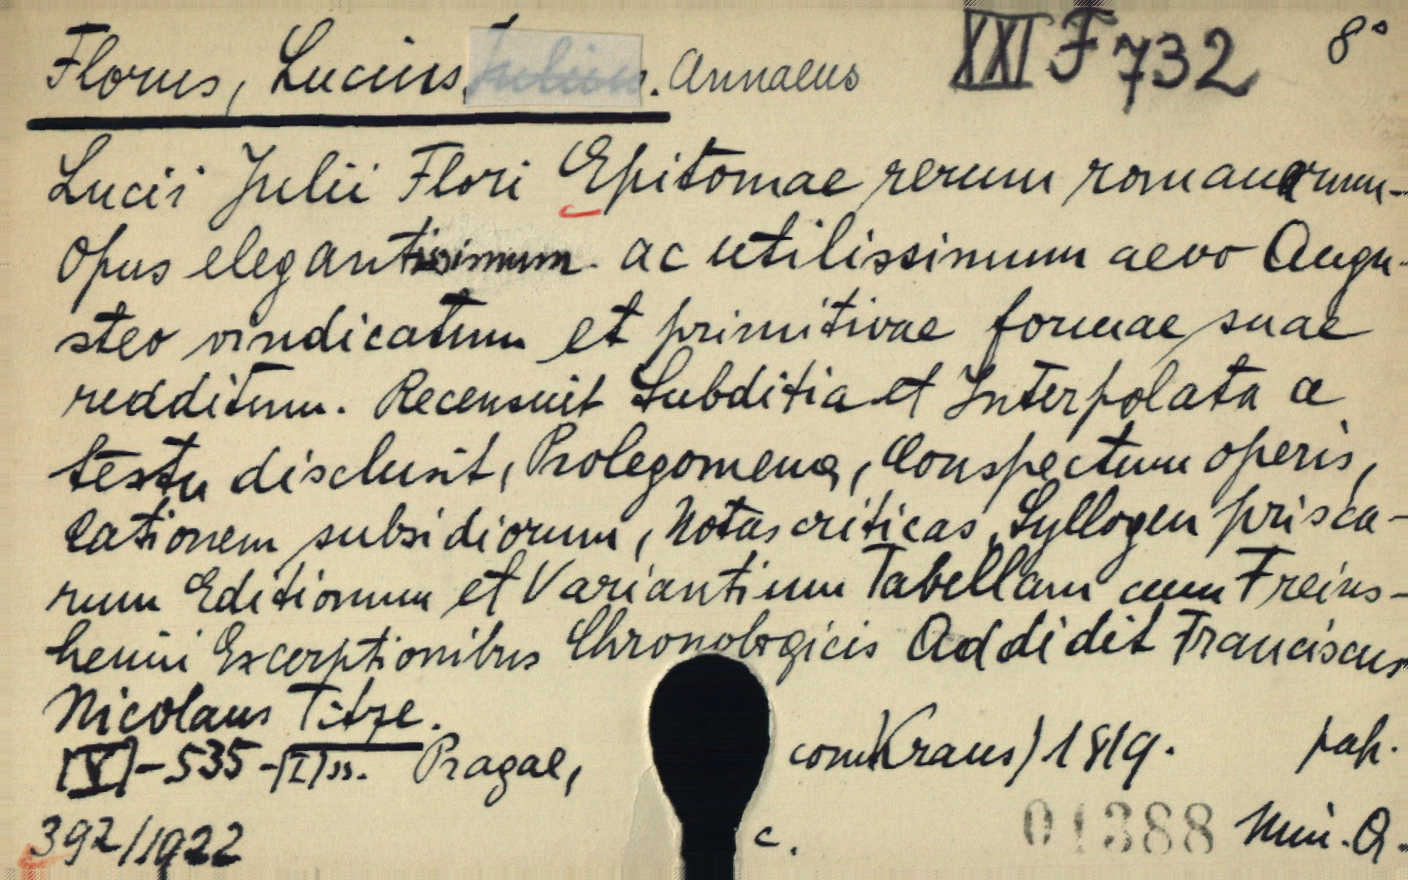 Florus, Lucius Julius. Annaeus XXI F 732 8°
Lucii Julii Flori Epitomae rerum romanarum-
Opus elegantissimum ac utilissimum aevo Augu-
steo vindicatum et primitivae formae suae
redditum. Recensuit Subditia et Interpolata a
testu disclusit, Prolegomena, Conspectum operis,
Cationem subsidiorum, Notas criticas, Syllogen prisca-
rum Editionum et Variantium Tabellam cum Freins-
hemii Excerptionibus Chronologicis Addidit Franciscus
Nicolaus Titze.
[V]-535-[I] ss. Pragae, Kraus) 1819. pap.
392/1922 c. 01388 Min. A.